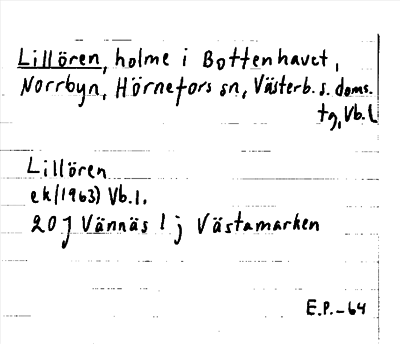 Lillören, holme i Bottenhavet,
Norrbyn, Hörnefors sn, Västerb. s. doms.
tg, Vb. l
Lillören
ek (1963) Vb. l.
20 J Vännäs l j Västamarken
E.P.-64